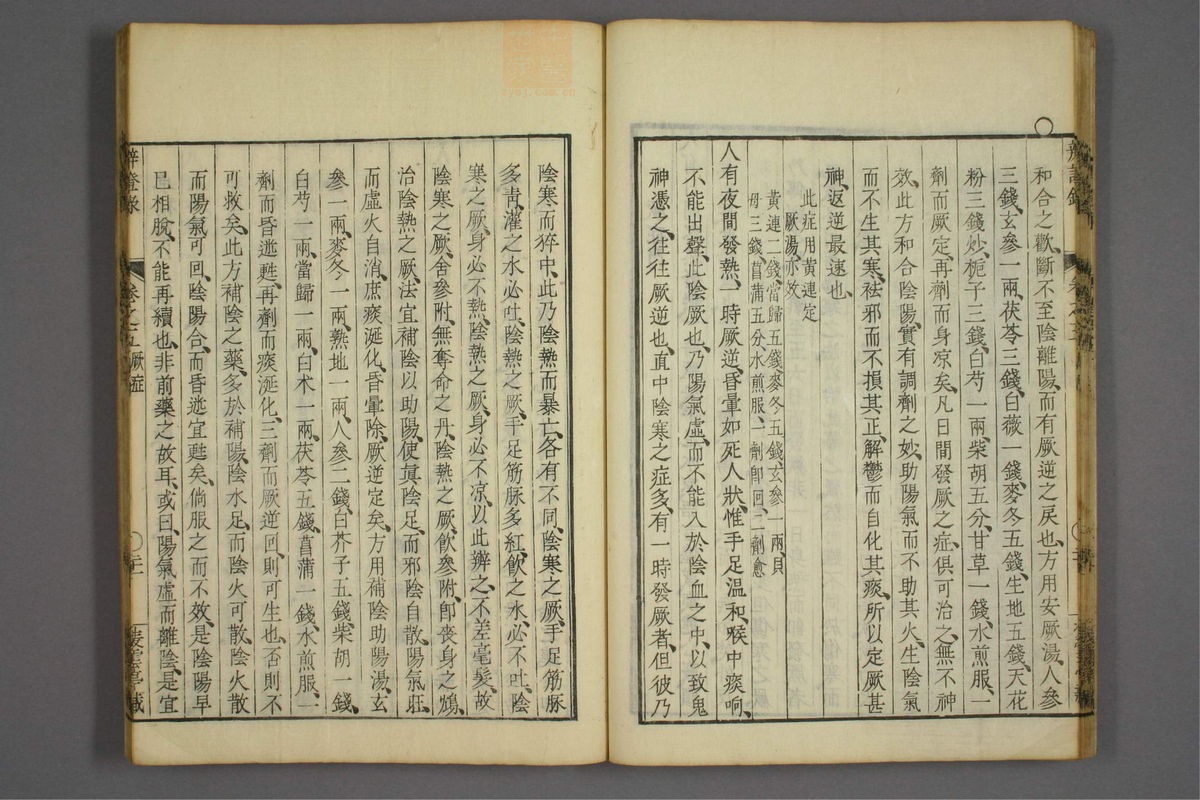 和合之歡、斷不至陰離陽、而有厥逆之戾也、方用安厥湯、人參
三錢、玄參一兩、茯苓三錢、白薇一錢、麥冬五錢、生地五錢、天花
粉三錢、炒梔子三錢、白芍一兩、柴胡五分、甘草一錢、水煎服、一
劑而厥定、再劑而身凉矣、凡日間發厥之症、俱可治之、無不神
效、此方和合陰陽、實有調劑之妙、助陽氣而不助其火、生陰氣
而不生其寒、祛邪而不損其正、解鬱而自化其痰、所以定厥甚
神、返逆最速也、
此症用黃連定
厥湯亦效
黃連二錢、當歸五錢、麥冬五錢、玄參一兩、貝
母三錢、菖蒲五分、水煎服、一劑卽回、二劑愈
人有夜間發熱、一時厥逆、昏暈如死人狀、惟手足溫和、喉中痰响、
不能出聲、此陰厥也、乃陽氣虛、而不能入於陰血之中、以致鬼
神憑之、往往厥逆也、直中陰寒之症多、有一時發厥者、但彼乃
陰寒而猝中、此乃陰熱而暴亡、各有不同、陰寒之厥、手足筋脉
多靑、灌之水必吐、陰熱之厥、手足筋脉多紅、飮之水必不吐、陰
寒之厥身必不熱、陰熱之厥身必不凉、以此辨之、不差毫髮、故
陰寒之厥、舍參附、無奪命之丹、陰熱之厥、飮參附、卽喪身之鴆、
治陰熱之厥、法宜補陰以助陽、使眞陰足、而邪陰自散、陽氣旺、
而虛火自消、庶痰涎化、昏暈除、厥逆定矣、方用補陰助陽湯、玄
參一兩、麥冬一兩、熟地一兩、人參二錢、白芥子五錢、柴胡一錢、
白芍一兩、當歸一兩、白朮一兩、茯苓五錢、菖蒲一錢、水煎服、一
劑而昏迷甦、再劑而痰涎化、三劑而厥逆回、則可生也、否則不
可救矣、此方補陰之藥、多於補陽、陰水足、而陰火可散、陰火散
而陽氣可回、陰陽合、而昏迷宜甦矣、倘服之而不效、是陰陽早
已相脫、不能再續也、非前藥之故耳、或曰、陽氣虛而離陰、是宜
辨證錄
卷之五 厥症